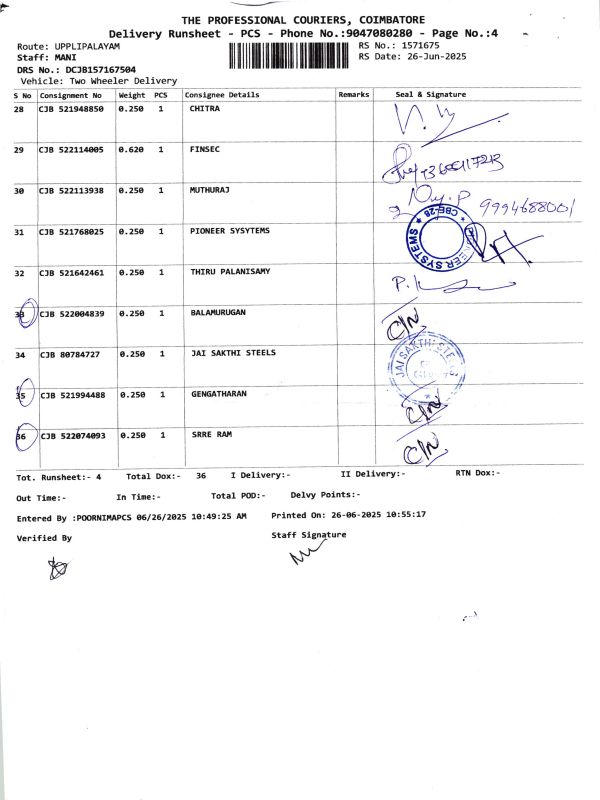 THE PROFESSIONAL COURIERS, COIMBATORE
Delivery Runsheet - PCS - Phone No.:9047080280 - Page No.:4
Route: UPPLIPALAYAM RS No.: 1571675
Staff: MANI RS Date: 26-Jun-2025
DRS No.: DCJB157167504
Vehicle: Two Wheeler Delivery
S No Consignment No Weight PCS Consignee Details Remarks Seal & Signature
28 CJB 521948850 0.250 1 CHITRA
29 CJB 522114005 0.620 1 FINSEC
30 CJB 522113938 0.250 1 MUTHURAJ 9994688001
31 CJB 521768025 0.250 1 PIONEER SYSYTEMS CBE-28
32 CJB 521642461 0.250 1 THIRU PALANISAMY
33 CJB 522004839 0.250 1 BALAMURUGAN C/N
34 CJB 80784727 0.250 1 JAI SAKTHI STEELS JAI SAKTHI STEELS
35 CJB 521994488 0.250 1 GENGATHARAN C/N
36 CJB 522074093 0.250 1 SRRE RAM C/N
Tot. Runsheet:- 4 Total Dox:- 36 I Delivery:- II Delivery:- RTN Dox:-
Out Time:- In Time:- Total POD:- Delvy Points:-
Entered By :POORNIMAPCS 06/26/2025 10:49:25 AM Printed On: 26-06-2025 10:55:17
Verified By Staff Signature